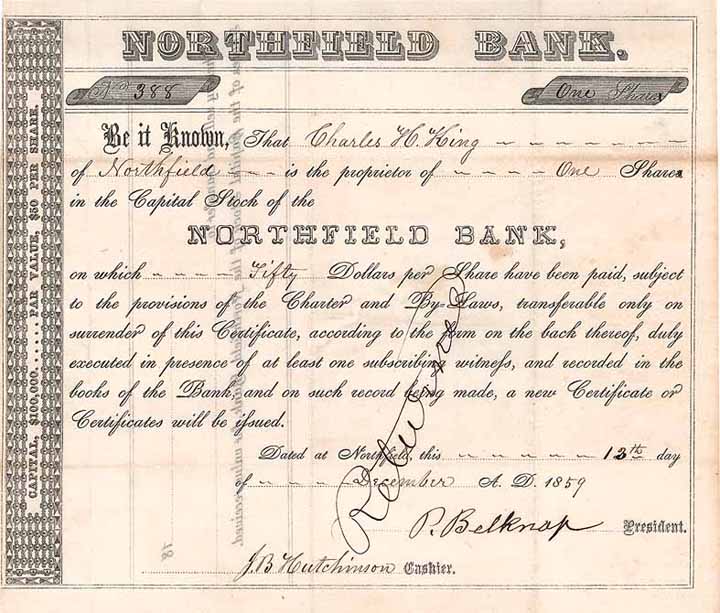 NORTHFIELD BANK.
No 388 One Share
Be it Known, That Charles H. King
of Northfield is the proprietor of One Shares
in the Capital Stock of the
NORTHFIELD BANK,
on which Fifty Dollars per Share have been paid, subject
to the provisions of the Charter and By-Laws, transferable only on
surrender of this Certificate, according to the form on the back thereof, duly
executed in presence of at least one subscribing witness, and recorded in the
books of the Bank, and on such record being made, a new Certificate or
Certificates will be issued.
Dated at Northfield, this 13th day
of December A. D. 1859
P. Belknap President.
J. B. Hutchinson Cashier.
CAPITAL, $100,000. .... PAR VALUE, $50 PER SHARE.